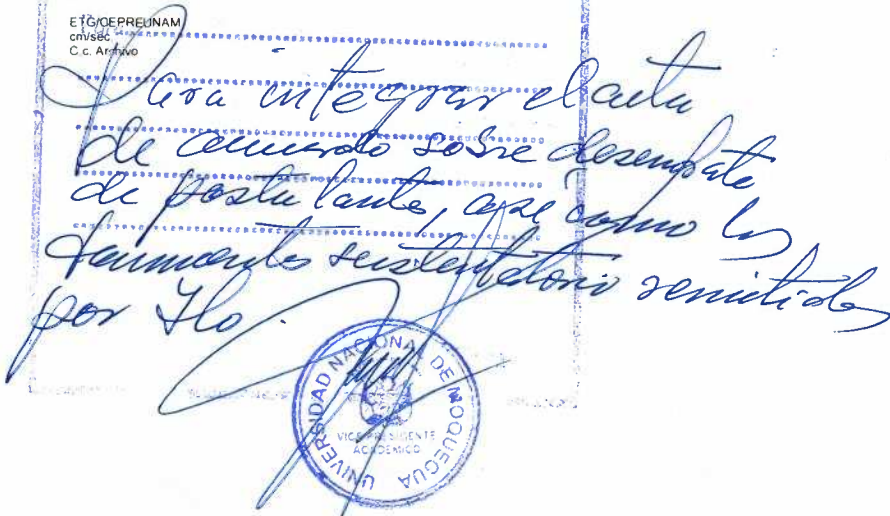 ETG/CEPREUNAM
cm/sec
C.c. Archivo
Para integrar el acta
de acuerdo sobre desempate
de postulantes, así como los
documentos sustentatorio remitidos
por Ilo.
UNIVERSIDAD NACIONAL DE MOQUEGUA
VICE PRESIDENTE
ACADEMICO